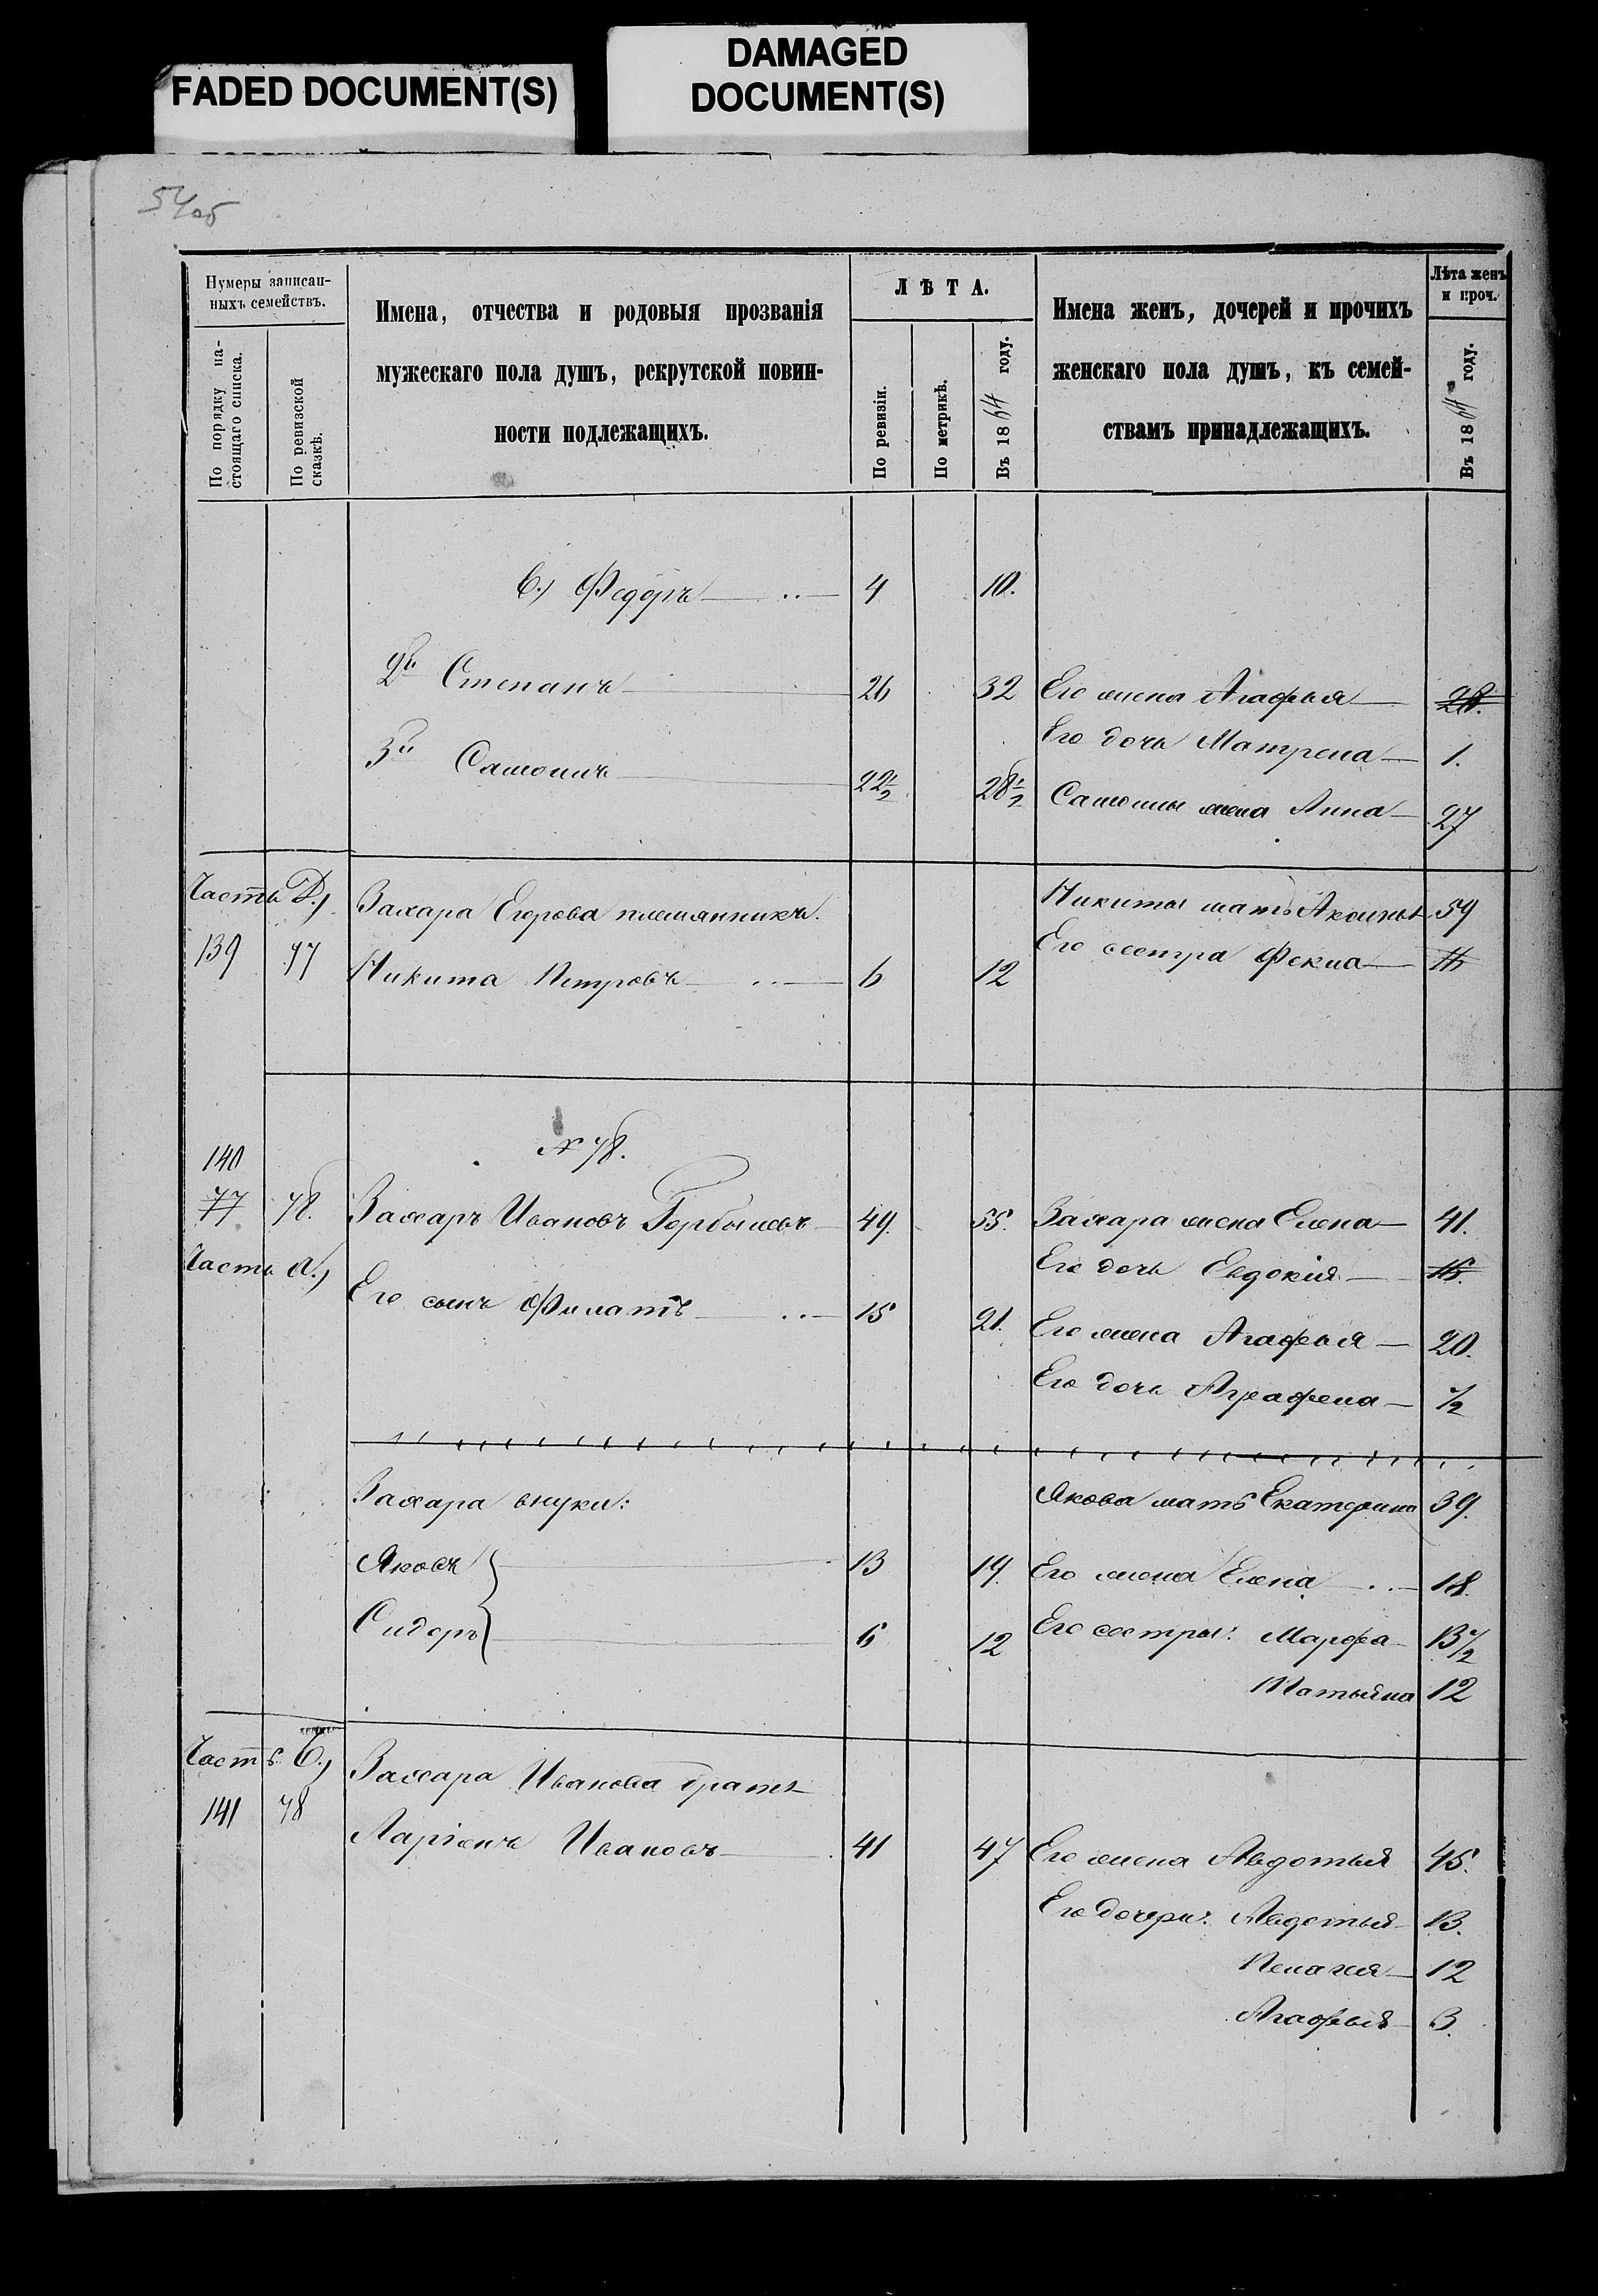 FADED DOCUMENT(S)
DAMAGED
DOCUMENT(S)
54об
Нумеры записан-
ныхъ семействъ.
По порядку на-
стоящаго списка.
По ревизской
сказкѣ.
Имена, отчества и родовыя прозванія
мужескаго пола душъ, рекрутской повин-
ности подлежащихъ.
ЛѢТА.
По ревизіи.
По метрикѣ.
Въ 1864 году.
Имена женъ, дочерей и прочихъ
женскаго пола душъ, къ семей-
ствамъ принадлежащихъ.
Лѣта женъ
и проч.
Въ 1864 году.
в.) Федоръ 4 10.
2й Степанъ 26 32 Его жена Агафья 28.
Его дочь Матрена 1.
3й Самонъ 22½ 28½ Самоны жена Анна 27
Часть Д.) Захара Егорова племянникъ. Никиты мать 59
139 77 Никита Петровъ 6 12 Его сестра Фекла 16
№ 78.
140
77 78. Захаръ Ивановъ 49. 55. Захара жена Елена 41.
Часть а.) Его дочь Евдокія 16.
Его сынъ Филатъ 15 21. Его жена Агафья 20.
Его дочь Аграфена ½
Захара внуки: Якова мать Екатерина 39.
Яковъ 13 19. Его жена Елена 18.
Сидоръ 6 12 Его сестры: Марфа 13½
Татьяна 12
Часть Б.) Захара Иванова братъ
141 78 Ларіонъ Ивановъ 41 47 Его жена Авдотья 45.
Его дочери: Авдотья 13.
Пелагея 12
Агафья 3.